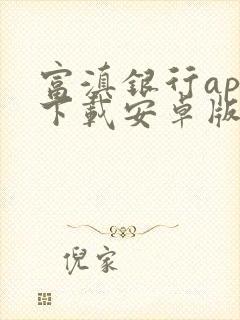 富滇银行ap
下载安卓版
倪家